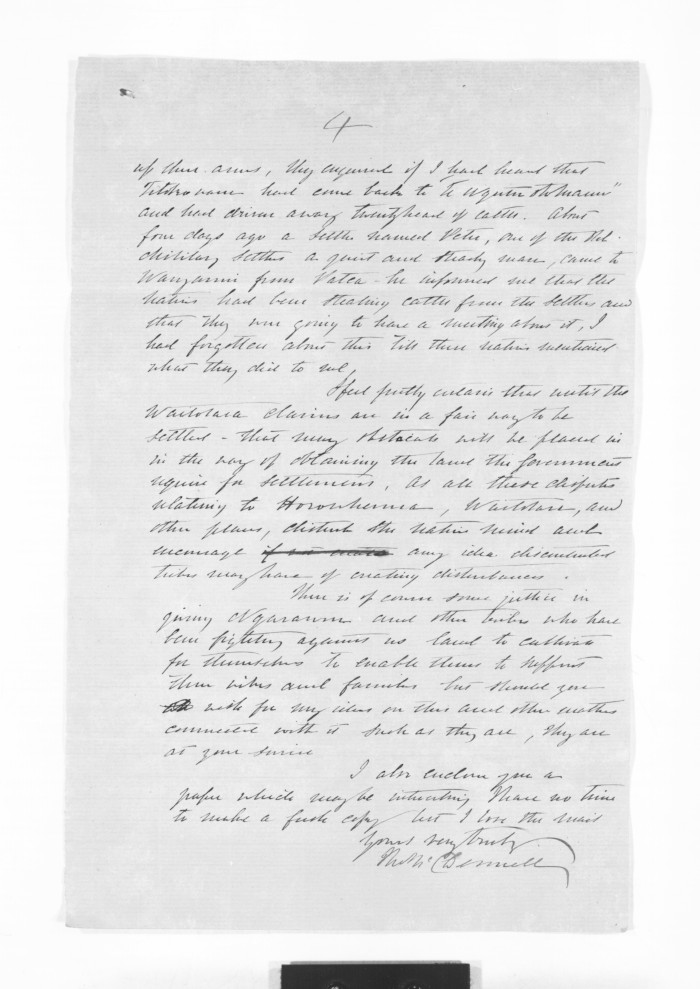 4
up their arms, they enquired if I had heard that
Titokowaru had come back to Te Ngutu o te manu"
and had driven away twenty head of cattle. About
four days ago a settler named Peter, one of the
Military Settlers a quiet and steady man, came to
Wanganui from Patea - he informed me that the
natives had been stealing cattle from the settlers and
that they were going to have a meeting about it, I
had forgotten about this till these natives mentioned
what they did to me,
I feel pretty certain that until the
Waitotara claims are in a fair way to be
settled - that many obstacals will be placed in
in the way of obtaining the land the Government
require for settlement, as all these disputes
relating to Horowhenua, Waitotara, and
other places, disturb the native mind and
encourage any idea discontented
tribes may have of creating disturbances.
There is of course some justice in
giving Ngarauru and other tribes who have
been fighting against us land to cultivate
for themselves to enable them to support
their wives and families but should you
wish for my ideas on this and other matters
connected with it such as they are, they are
at your service
I also enclose you a
paper which may be interesting I have no time
to make a fresh copy lest I lose the mail
Yours very truly
McDonnell